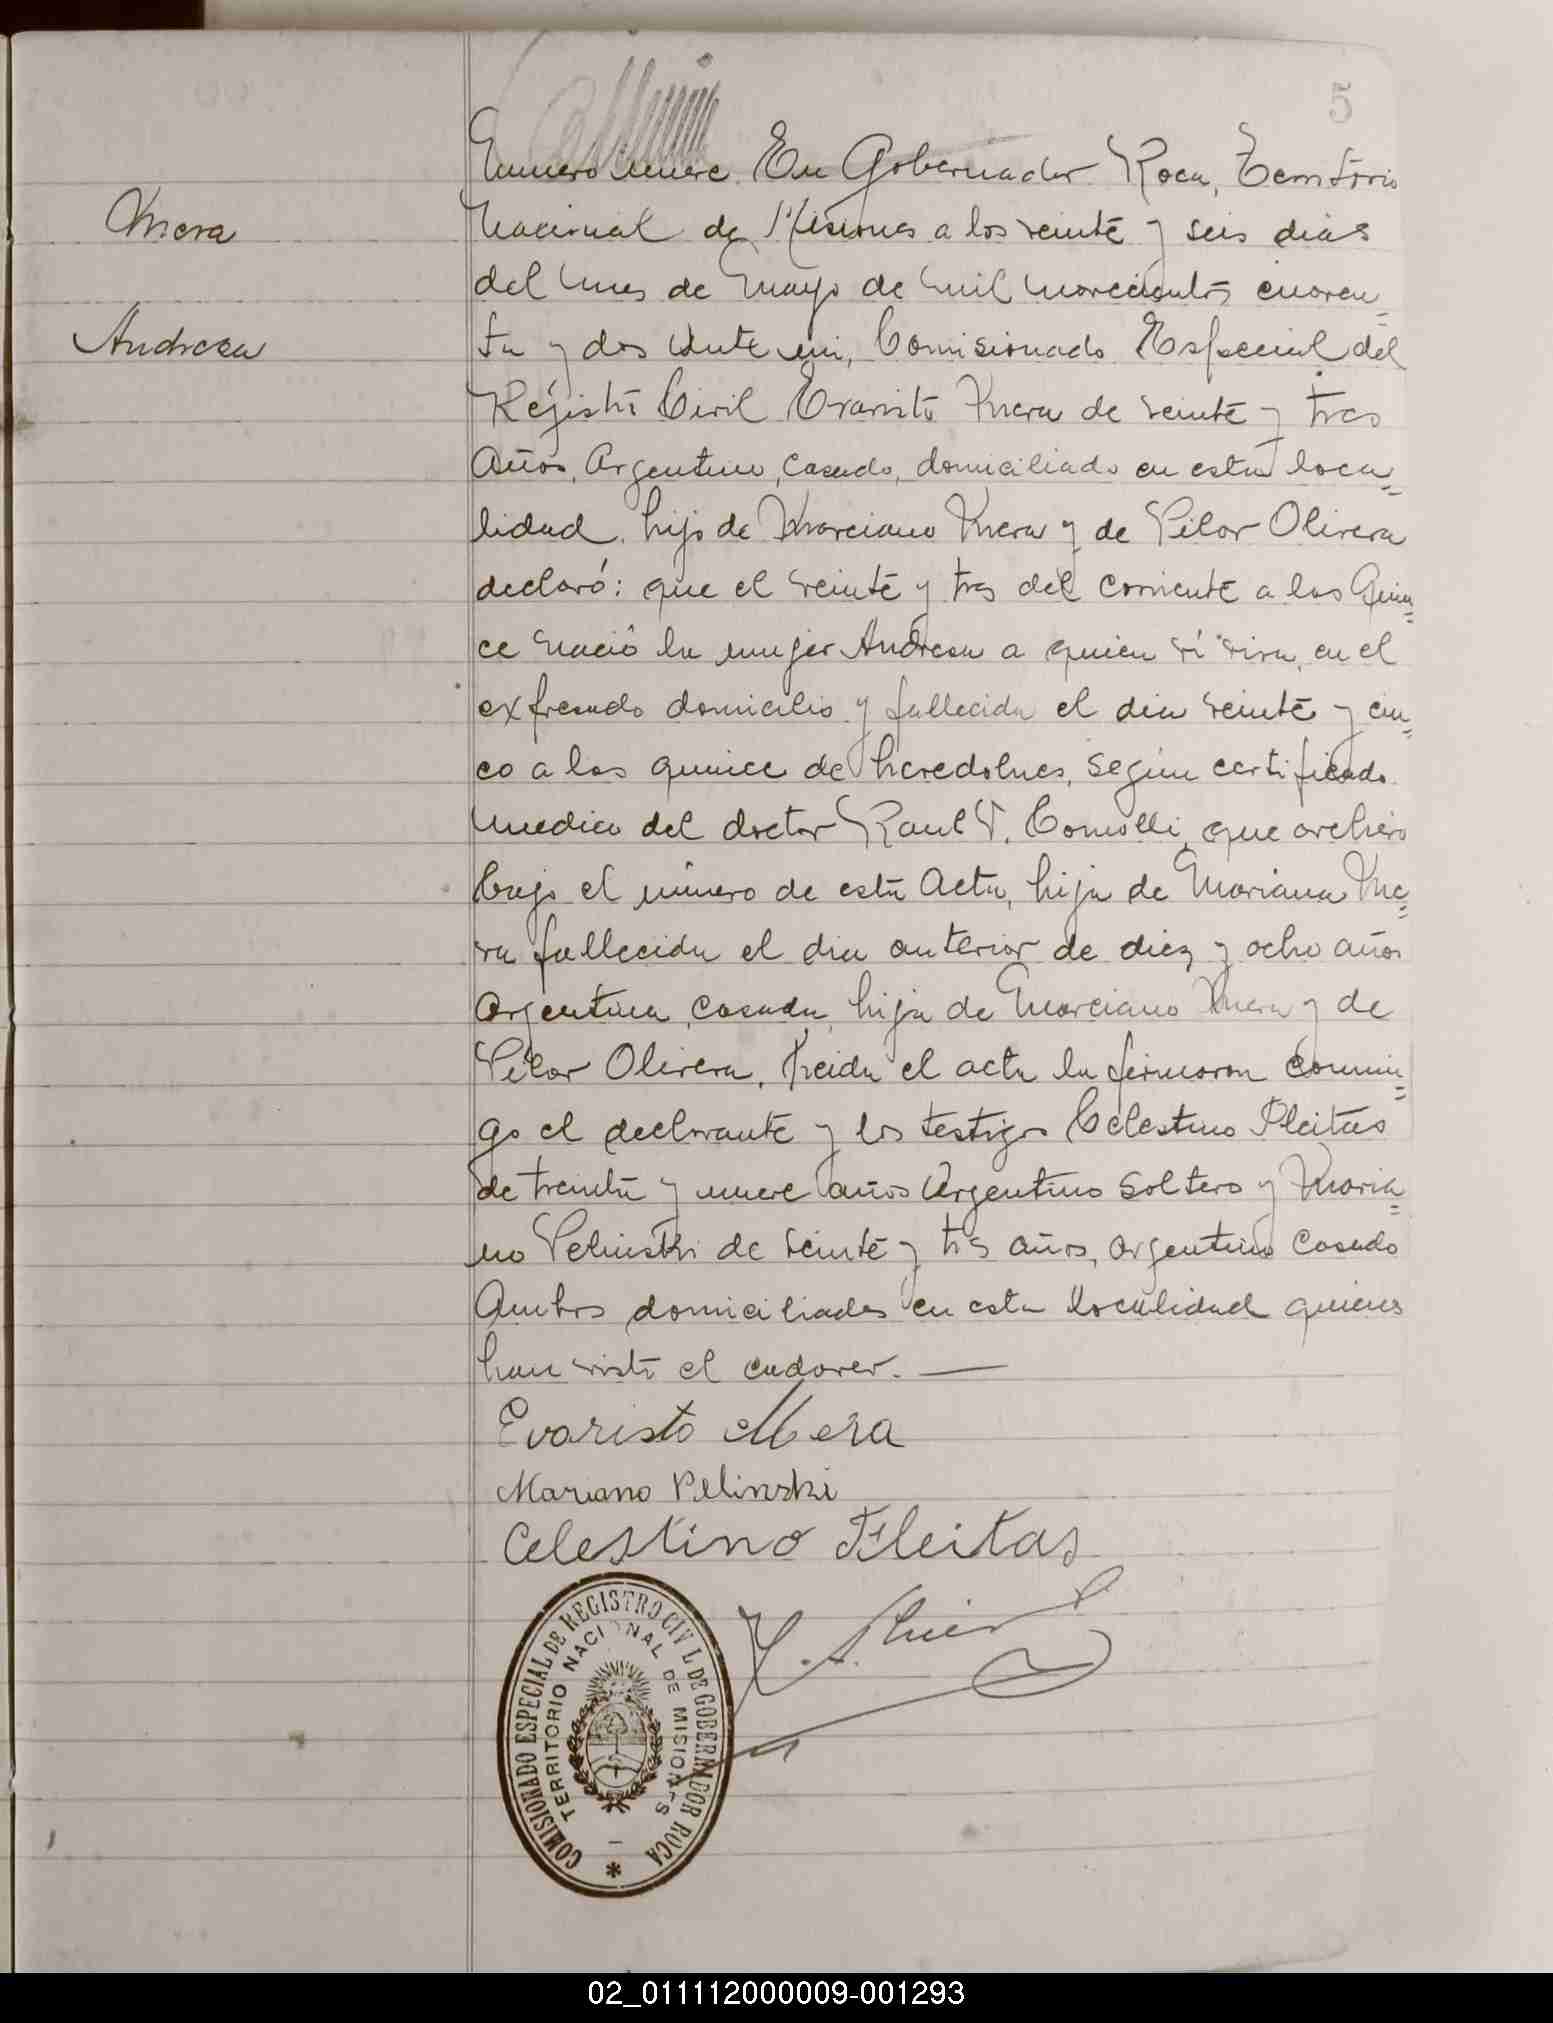 5
Numero nueve. En Gobernador Roca, Territorio
Mera
Nacional de Misiones a los veinte y seis dias
del mes de Mayo de mil novecientos cuaren=
Andresa
ta y dos Ante mi, Comisionado Especial del
Registro Civil Evaristo Mera de veinte y tres
años, Argentino, casado, domiciliado en esta loca=
lidad, hijo de Marciano Mera y de Pilar Olivera
declaró: que el veinte y tres del corriente a las Quin=
ce nació la mujer Andresa a quien vi viva, en el
expresado domicilio y fallecida el dia veinte y cin=
co a las quince de heredolues, según certificado
medico del doctor Raul V. Comolli, que archivo
bajo el número de esta Acta, hija de Mariana Me=
ra fallecida el dia anterior de diez y ocho años
argentina, casada, hija de Marciano Mera y de
Pilar Olivera. Leida el acta la firmaron conmi=
go el declarante y los testigos Celestino Fleitas
de treinta y nueve años Argentino soltero y Maria=
no Pelinski de veinte y tres años, argentino casado
Ambos domiciliados en esta localidad quienes
han visto el cadaver. —
Evaristo Mera
Mariano Pelinski
Celestino Fleitas
COMISIONADO ESPECIAL DE REGISTRO CIVIL DE GOBERNADOR ROCA
TERRITORIO NACIONAL DE MISIONES
02_011112000009-001293